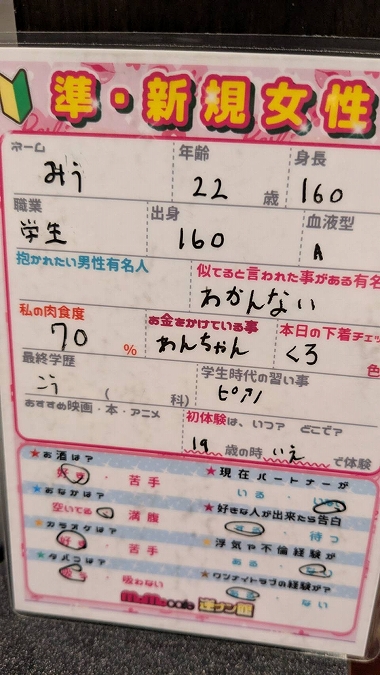 準・新規女性
ネーム 年齢 身長
みう 22 歳 160
職業 出身 血液型
学生 160 A
抱かれたい男性有名人 似てると言われた事がある有名
わかんない
私の肉食度 お金をかけている事 本日の下着チェッ
70 % わんちゃん くろ 色
最終学歴 学生時代の習い事
こう ( 科) ピアノ
おすすめ映画・本・アニメ 初体験は、いつ? どこで?
19 歳の時 いえ で体験
★お酒は? ★現在パートナーが
好き・苦手 いる・いない
★おなかは? ★好きな人が出来たら告白
空いてる・満腹 する・待つ
★カラオケは? ★浮気や不倫経験が
好き・苦手 ある・ない
★タバコは? ★ワンナイトラブの経験が?
吸う・吸わない ある・ない
MoMo cafe